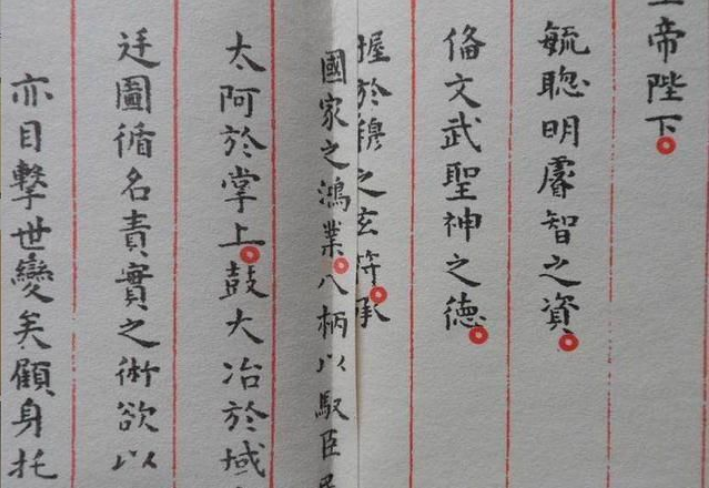 帝陛下
毓聰明睿智之資
俻文武聖神之德
握於穆之玄符承
國家之鴻業八柄以馭臣
太阿於掌上鼓大冶於域
迋圖循名責實之術欲以
亦目擊世變矣顧身托